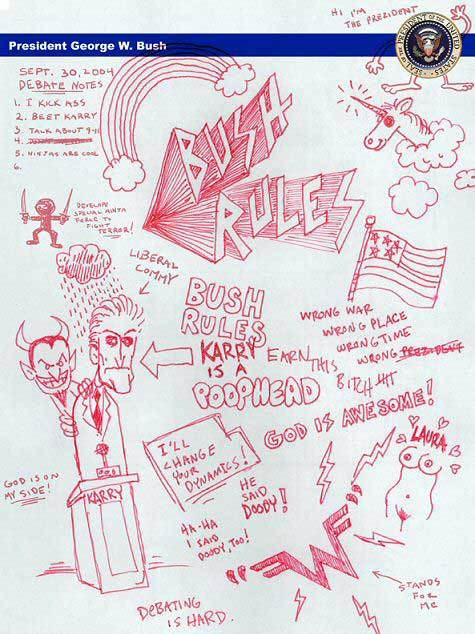 HI I'M
THE PRESIDENT
SEAL OF THE PRESIDENT OF THE UNITED STATES
President George W. Bush
SEPT. 30, 2004
DEBATE NOTES
1. I KICK ASS
2. BEET KARRY
3. TALK ABOUT 9-11
4.
5. NINJAS ARE COOL
6.
BUSH
RULES
DEVELOPE
SPECIAL NINJA
FORCE TO
FIGHT
TERROR!
LIBERAL
COMMY
BUSH
RULES
KARRY
IS A
POOPHEAD
WRONG WAR
WRONG PLACE
WRONG TIME
WRONG PREZIDENT
EARN THIS
BITCH
GOD IS AWESOME!
LAURA
I'LL
CHANGE
YOUR
DYNAMICS!
GOD IS ON
MY SIDE!
KARRY
HE
SAID
DOODY!
HA-HA
I SAID
DOODY, TOO!
"W"
STANDS
FOR
ME
DEBATING
IS HARD.